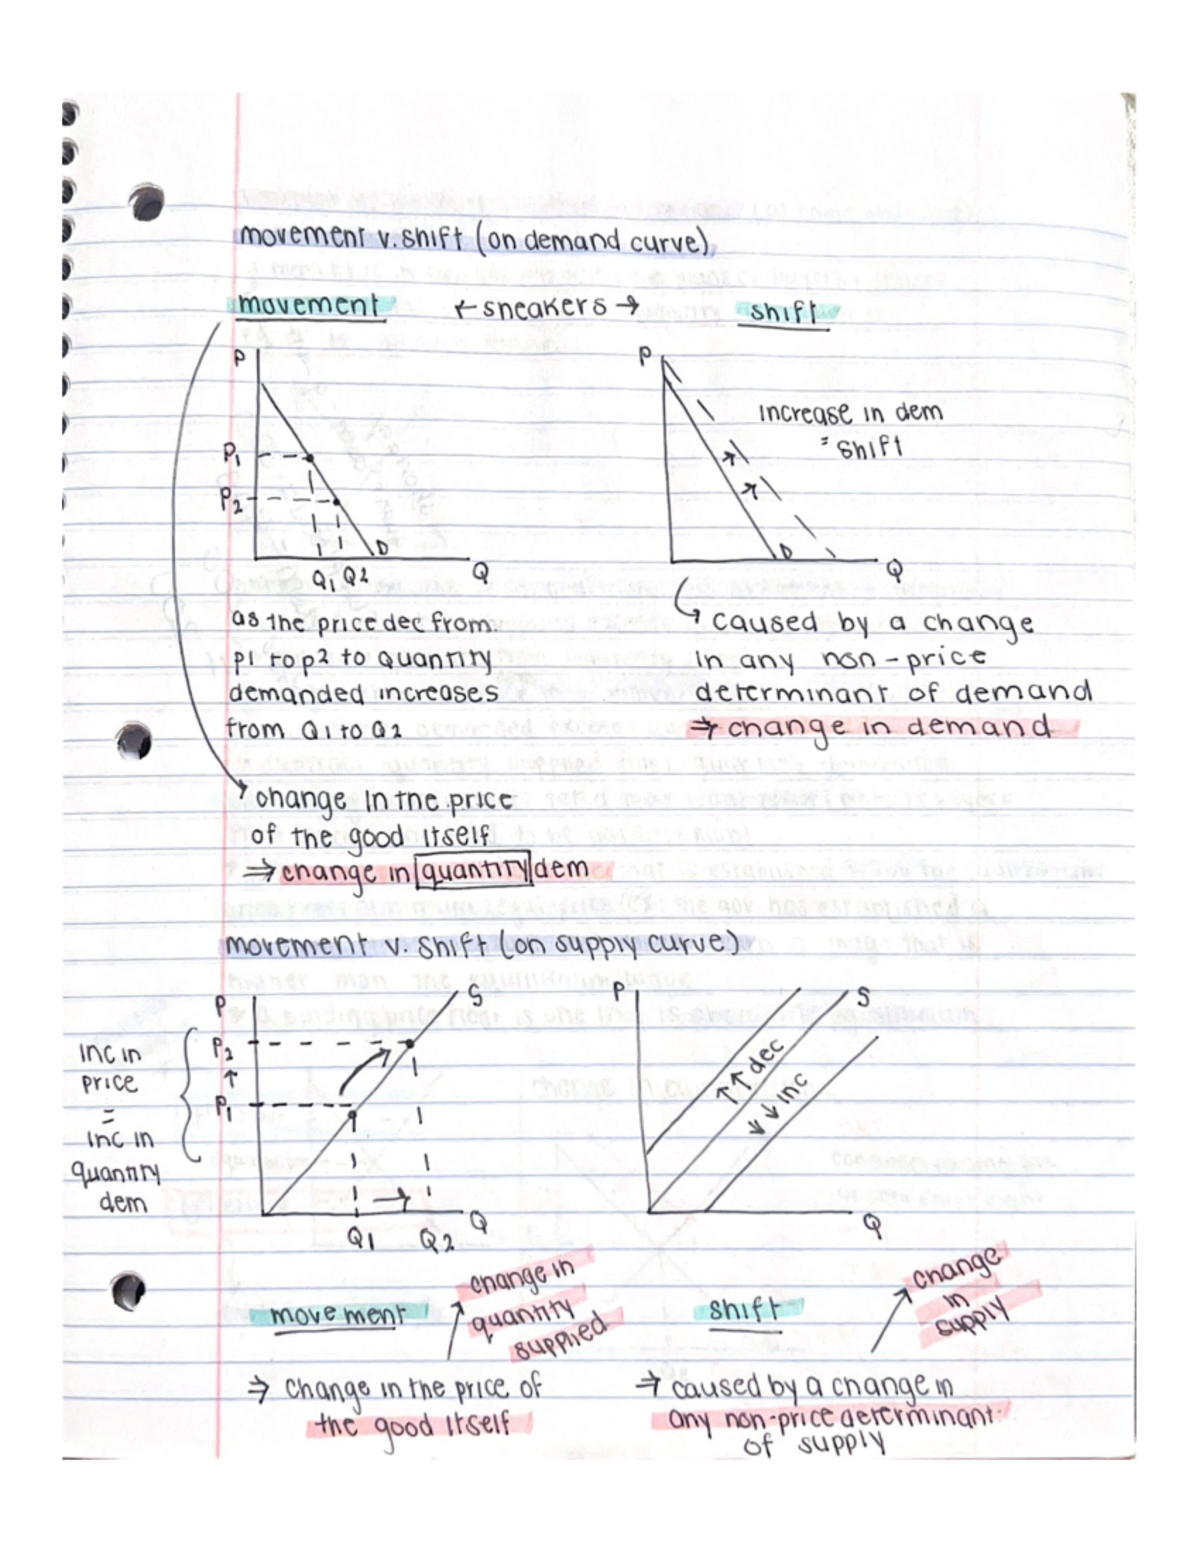 movement v. shift (on demand curve)
movement ← sneakers → shift
P
P1
P2
D
Q1 Q2
Q
P
increase in dem
= shift
D
Q
as the price dec from
p1 to p2 to quantity
demanded increases
from Q1 to Q2
caused by a change
in any non-price
determinant of demand
⇒ change in demand
change in the price
of the good itself
⇒ change in quantity dem
movement v. shift (on supply curve)
P
S
P2
↑
P1
inc in
price
=
inc in
quantity
dem
Q1 Q2
Q
P
S
↑↑ dec
↓↓ inc
Q
movement
change in
quantity
supplied
shift
change
in
supply
⇒ change in the price of
the good itself
⇒ caused by a change in
any non-price determinant
of supply